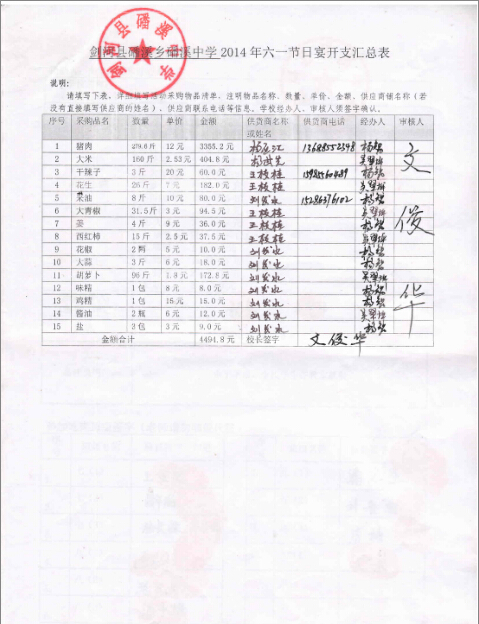 剑河县磻溪乡磻溪中学 2014 年六一节日宴开支汇总表
说明：
请填写下表，详细填写活动采购物品清单，注明物品名称、数量、单价、金额、供应商铺名称（若
没有直接填写供应商的姓名）、供应商联系电话等信息，学校经办人、审核人须签字确认。
序号 采购品名 数量 单价 金额 供货商名称或姓名 供货商电话 经办人 审核人
1 猪肉 279.6斤 12 元 3355.2 元
2 大米 160 斤 2.53 元 404.8 元
3 干辣子 3 斤 20 元 60.0 元 王枝桂
4 花生 26 斤 7 元 182.0 元 王枝桂
5 菜油 8 斤 10 元 80.0 元 刘发水 15286376102
6 大青椒 31.5斤 3 元 94.5 元 王枝桂
7 姜 4 斤 9 元 36.0 元 王枝桂
8 西红柿 15 斤 2.5 元 37.5 元 王枝桂
9 花椒 2 两 5 元 10.0 元 刘发水
10 大蒜 3 斤 6 元 18.0 元 刘发水
11 胡萝卜 96 斤 1.8 元 172.8 元 刘发水
12 味精 1 包 8 元 8.0 元 刘发水
13 鸡精 1 包 15 元 15.0 元 刘发水
14 酱油 2 瓶 6 元 12.0 元 刘发水
15 盐 3 包 3 元 9.0 元 刘发水
金额合计 4494.8 元 校长签字 文俊华
文俊华